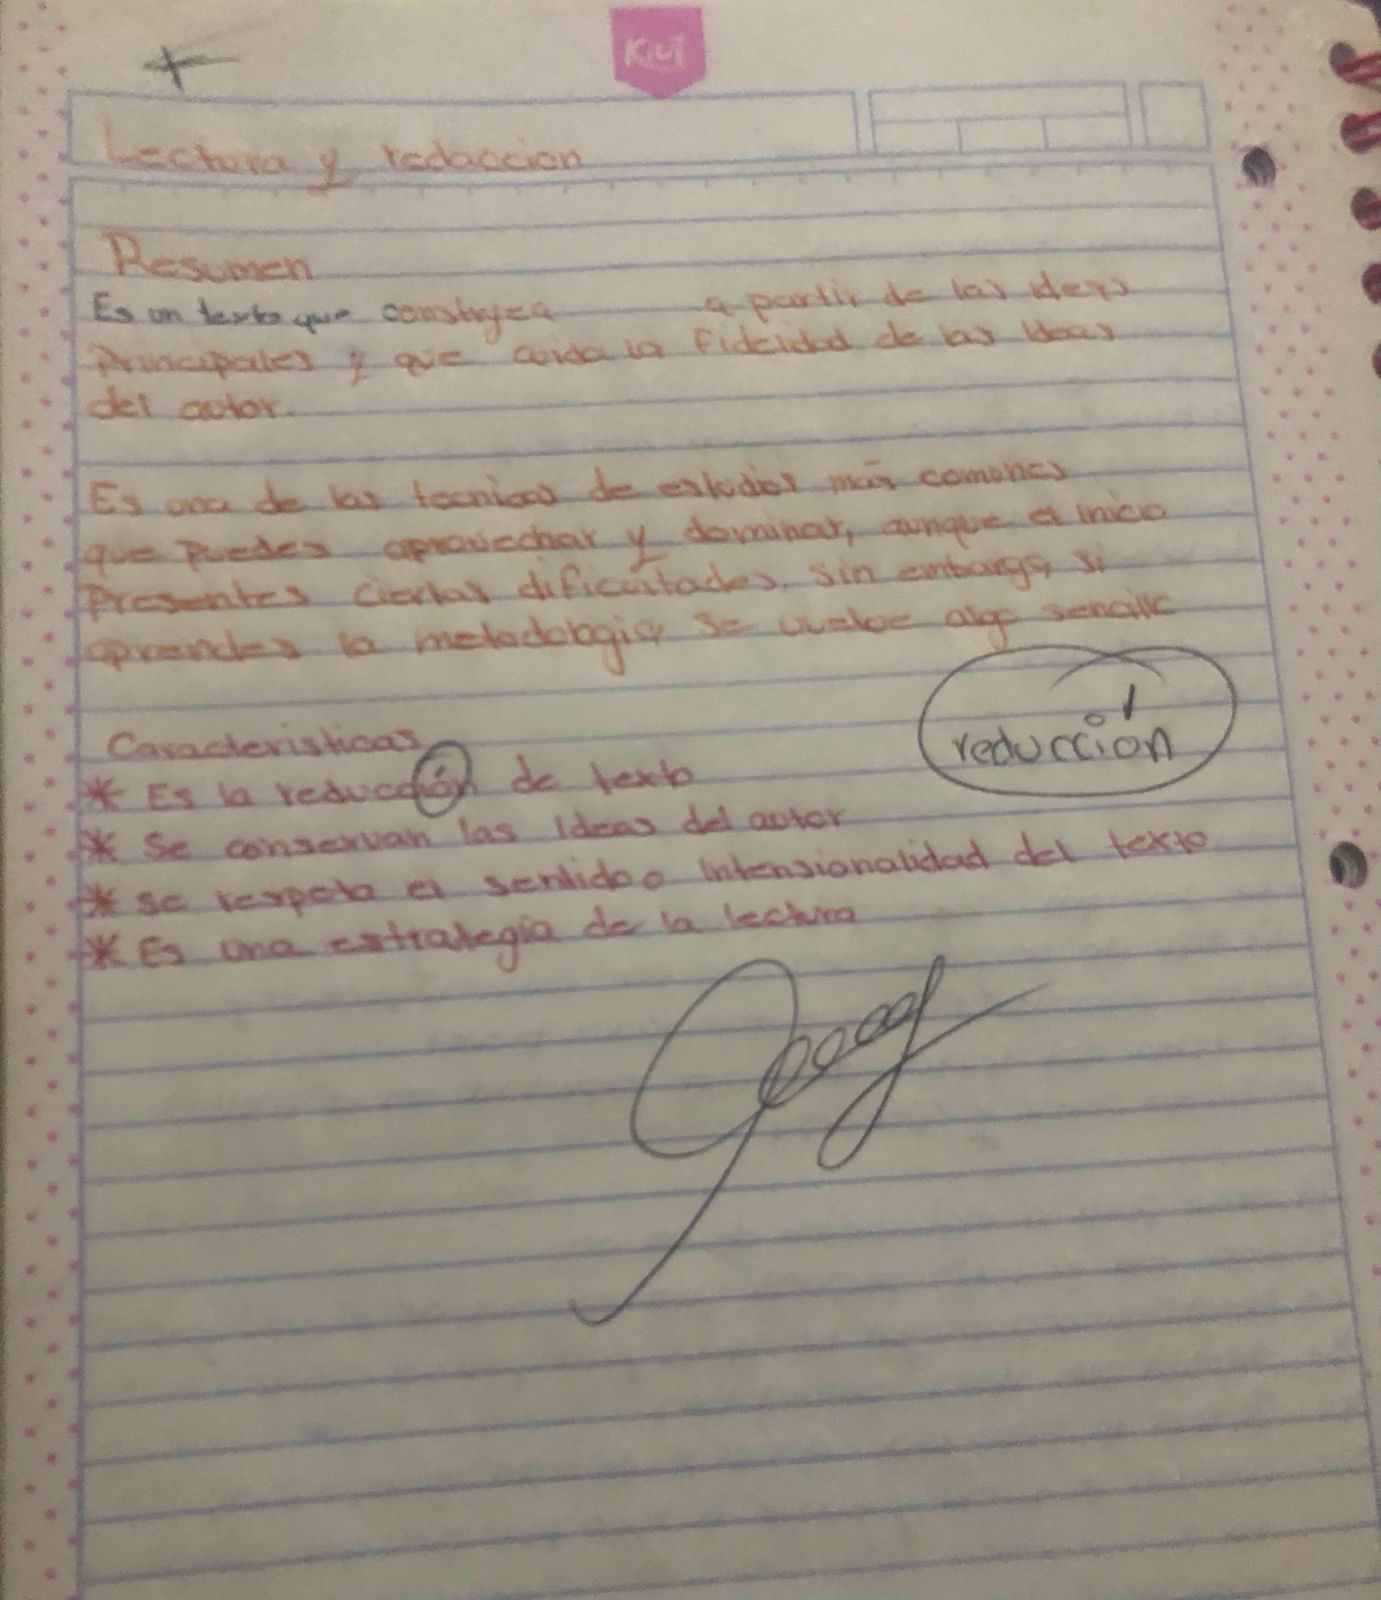 Kiut
Lectura y redaccion
Resumen
Es un texto que a partir de las ideas
principales y que cuida la fidelidad de las Ideas
del autor.
Es una de las tecnicas de estudios más comunes
que puedes aprovechar y dominar, aunque el inicio
presentes ciertas dificultades. sin embargo, si
aprendes la metodologia se vuelve algo sencillo
reducción
Caracteristicas
* Es la reducción de texto
* Se conservan las Ideas del autor
* se respeta el sentido o Intensionalidad del texto
* Es una estrategia de la lectura